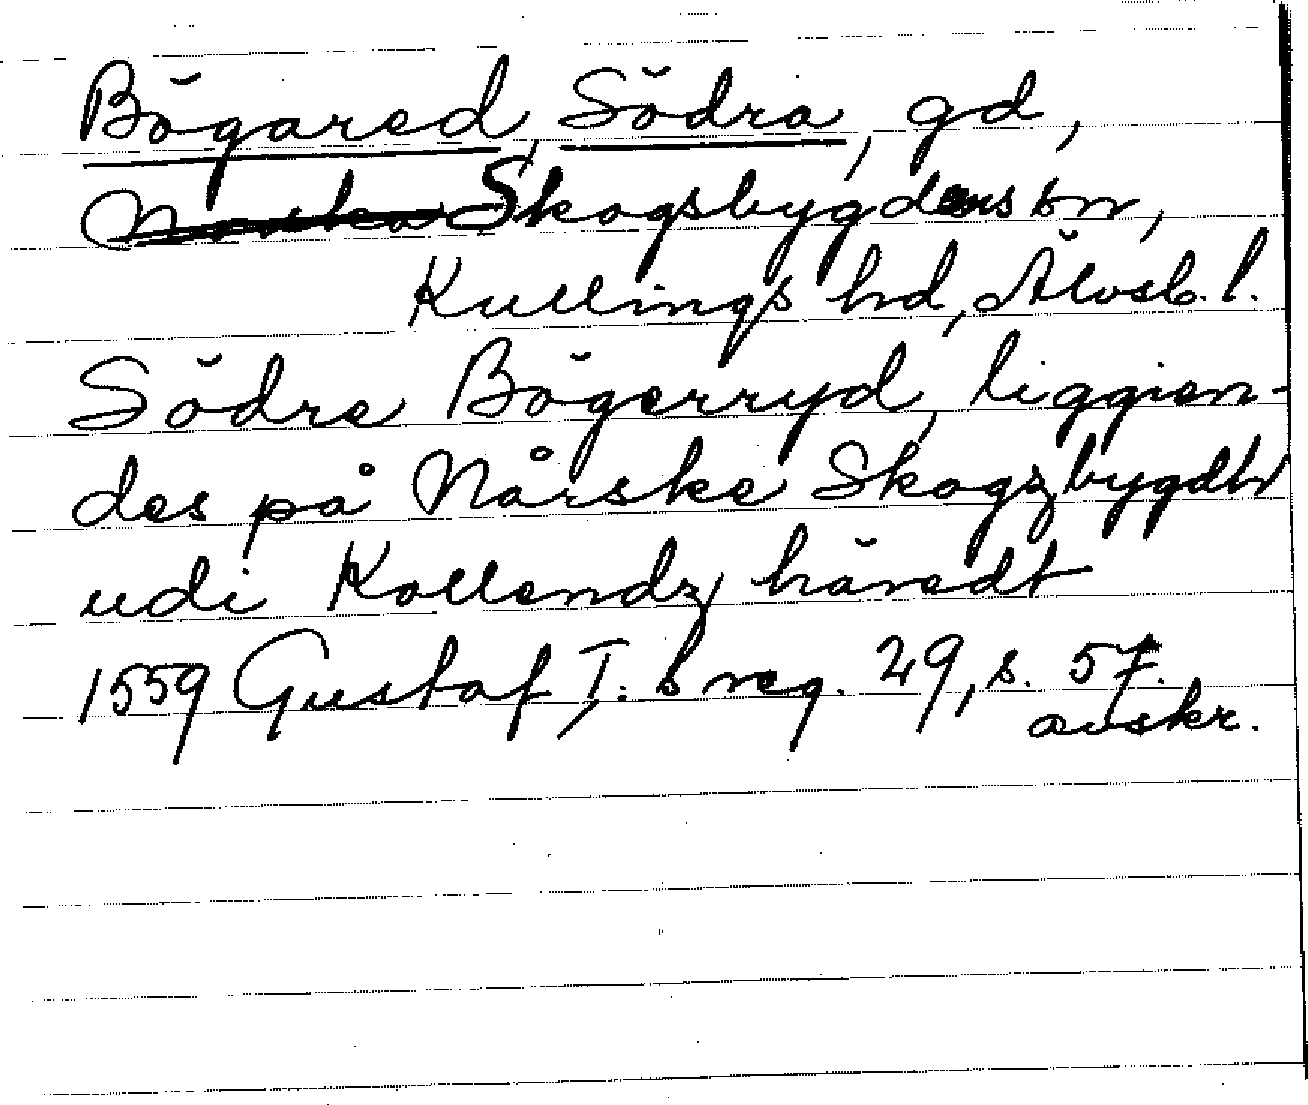 Bögared, Södra, gd,
Norska Skogsbygdens sn,
Kullings hd, Älvsb. l.
Södre Bögerryd, liggien-
des på Nårske Skogzbygdh
udi Kollendz häredt
1559 Gustaf I: s reg. 29, s. 57.
avskr.